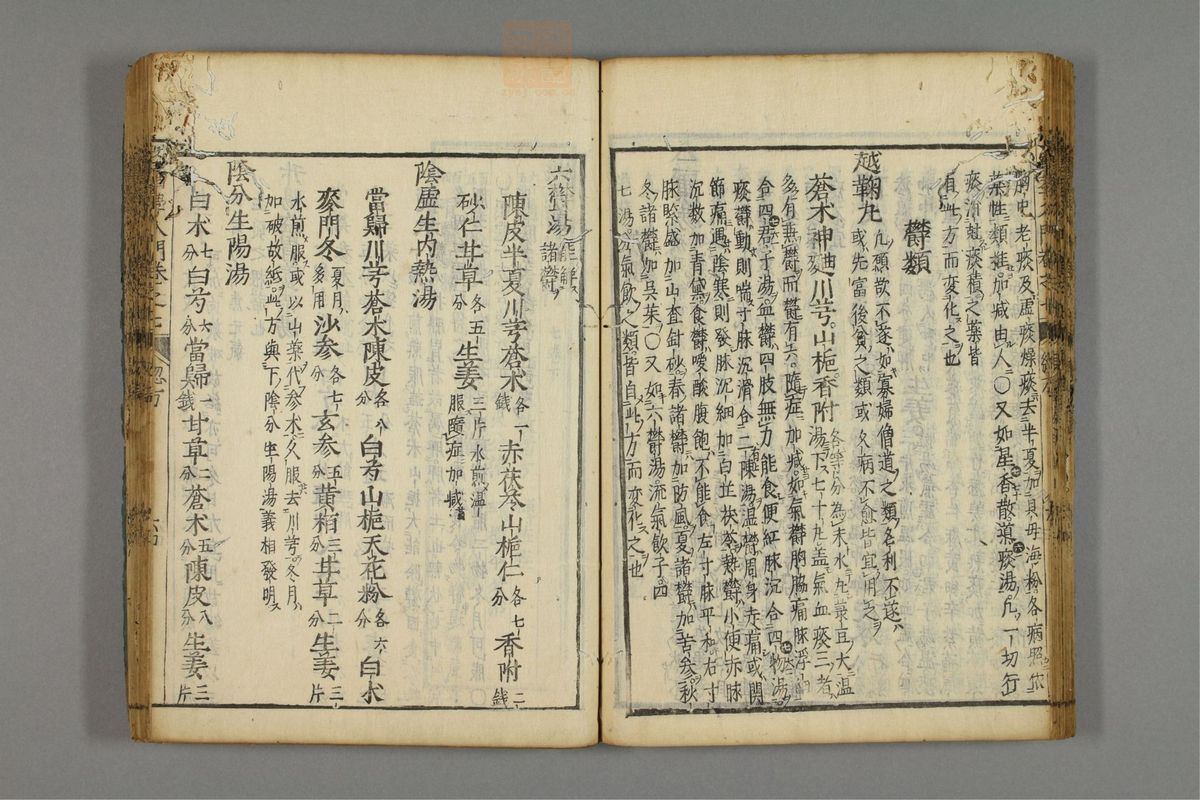 胸中老痰及虛痰燥痰去半夏加貝母海粉各病照依
藥性類推加減由人〇又如星香散導痰湯凡一切行
痰消
痰積之藥皆
自此方而變化之也
鬱類
越鞠丸
凡願欲不遂如寡婦僧道之類名利不遂
或先富後貧之類或久病不愈皆宜用之
蒼朮神曲川芎山梔香附
各等分為末水丸菉豆大溫
湯下七十丸盖氣血痰三者
多有兼鬱而鬱有六隨症加减如氣鬱胸脇痛脉浮
合四君子湯血鬱四肢無力能食便紅脉沉合四物湯
痰鬱動則喘寸脉沉滑合二陳湯溫鬱周身赤痛或関
節痛遇陰寒則發脉沉細加白芷茯苓熱鬱小便赤脉
沉數加青黛食鬱噯酸腹飽不能食左寸脉平和右寸
脉緊盛加山查針砂春諸鬱加防風夏諸鬱加苦参秋
冬諸鬱加吳茱〇又如六鬱湯流氣飲子四
七湯分氣飲之類皆自此方而変化之也
六鬱湯
能解
諸鬱
陳皮半夏川芎蒼朮各一錢赤茯苓山梔仁各七分香附二錢
砂仁甘草各五分生姜三片水煎溫服隨症加减
陰虛生內熱湯
當歸川芎蒼朮陳皮各八分白芍山梔天花粉各六分白朮
麥門冬夏月多用沙參各七分玄參五分黃栢三分甘草二分生姜三片
水煎服或以山藥代參朮久服去川芎冬月
加破故紙此方與下陰分生陽湯義相發明
陰分生陽湯
白朮七分白芍六分當歸一錢甘草二分蒼朮五分陳皮八分生姜三片